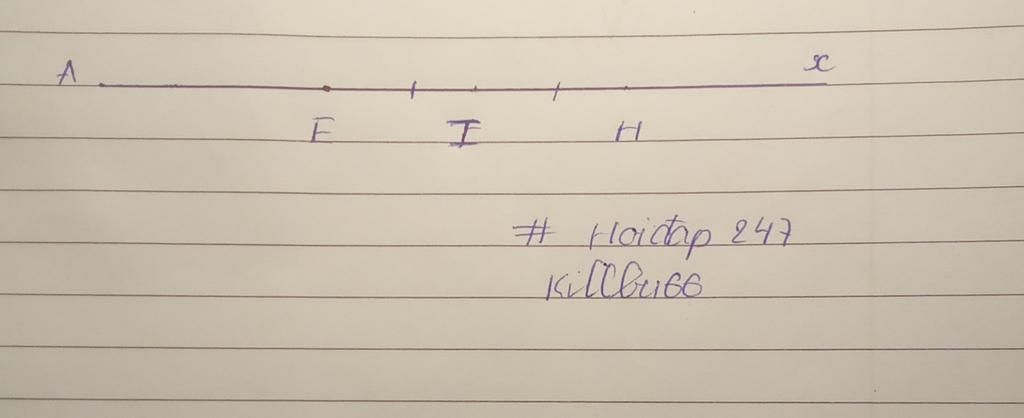 A x
E I H
# Hoidap 247
Killbu66